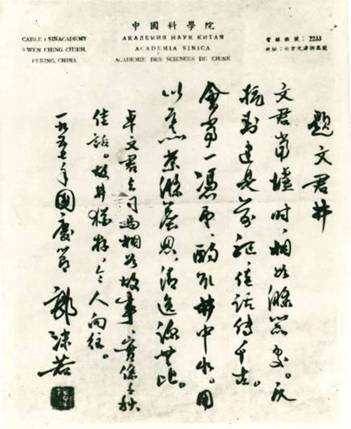 中國科學院
АКАДЕМИЯ НАУК КИТАЯ
ACADEMIA SINICA
ACADEMIE DES SCIENCES DE CHINE
CABLE: SINACADEMY
3 WEN CHING CHIEH,
PEKING, CHINA
電報掛號: 2233
地址: 北京文津街三號
題文君井
文君當壚時,相如滌器處。反
抗封建是前驅,佳話傳千古。
會當一憑弔,酌取井中水。用
以烹茶滌塵思,清逸涼無比。
卓文君與司馬相如故事,實係千秋
佳話。故井猶存,令人向往。
一九五七年國慶節 郭沫若